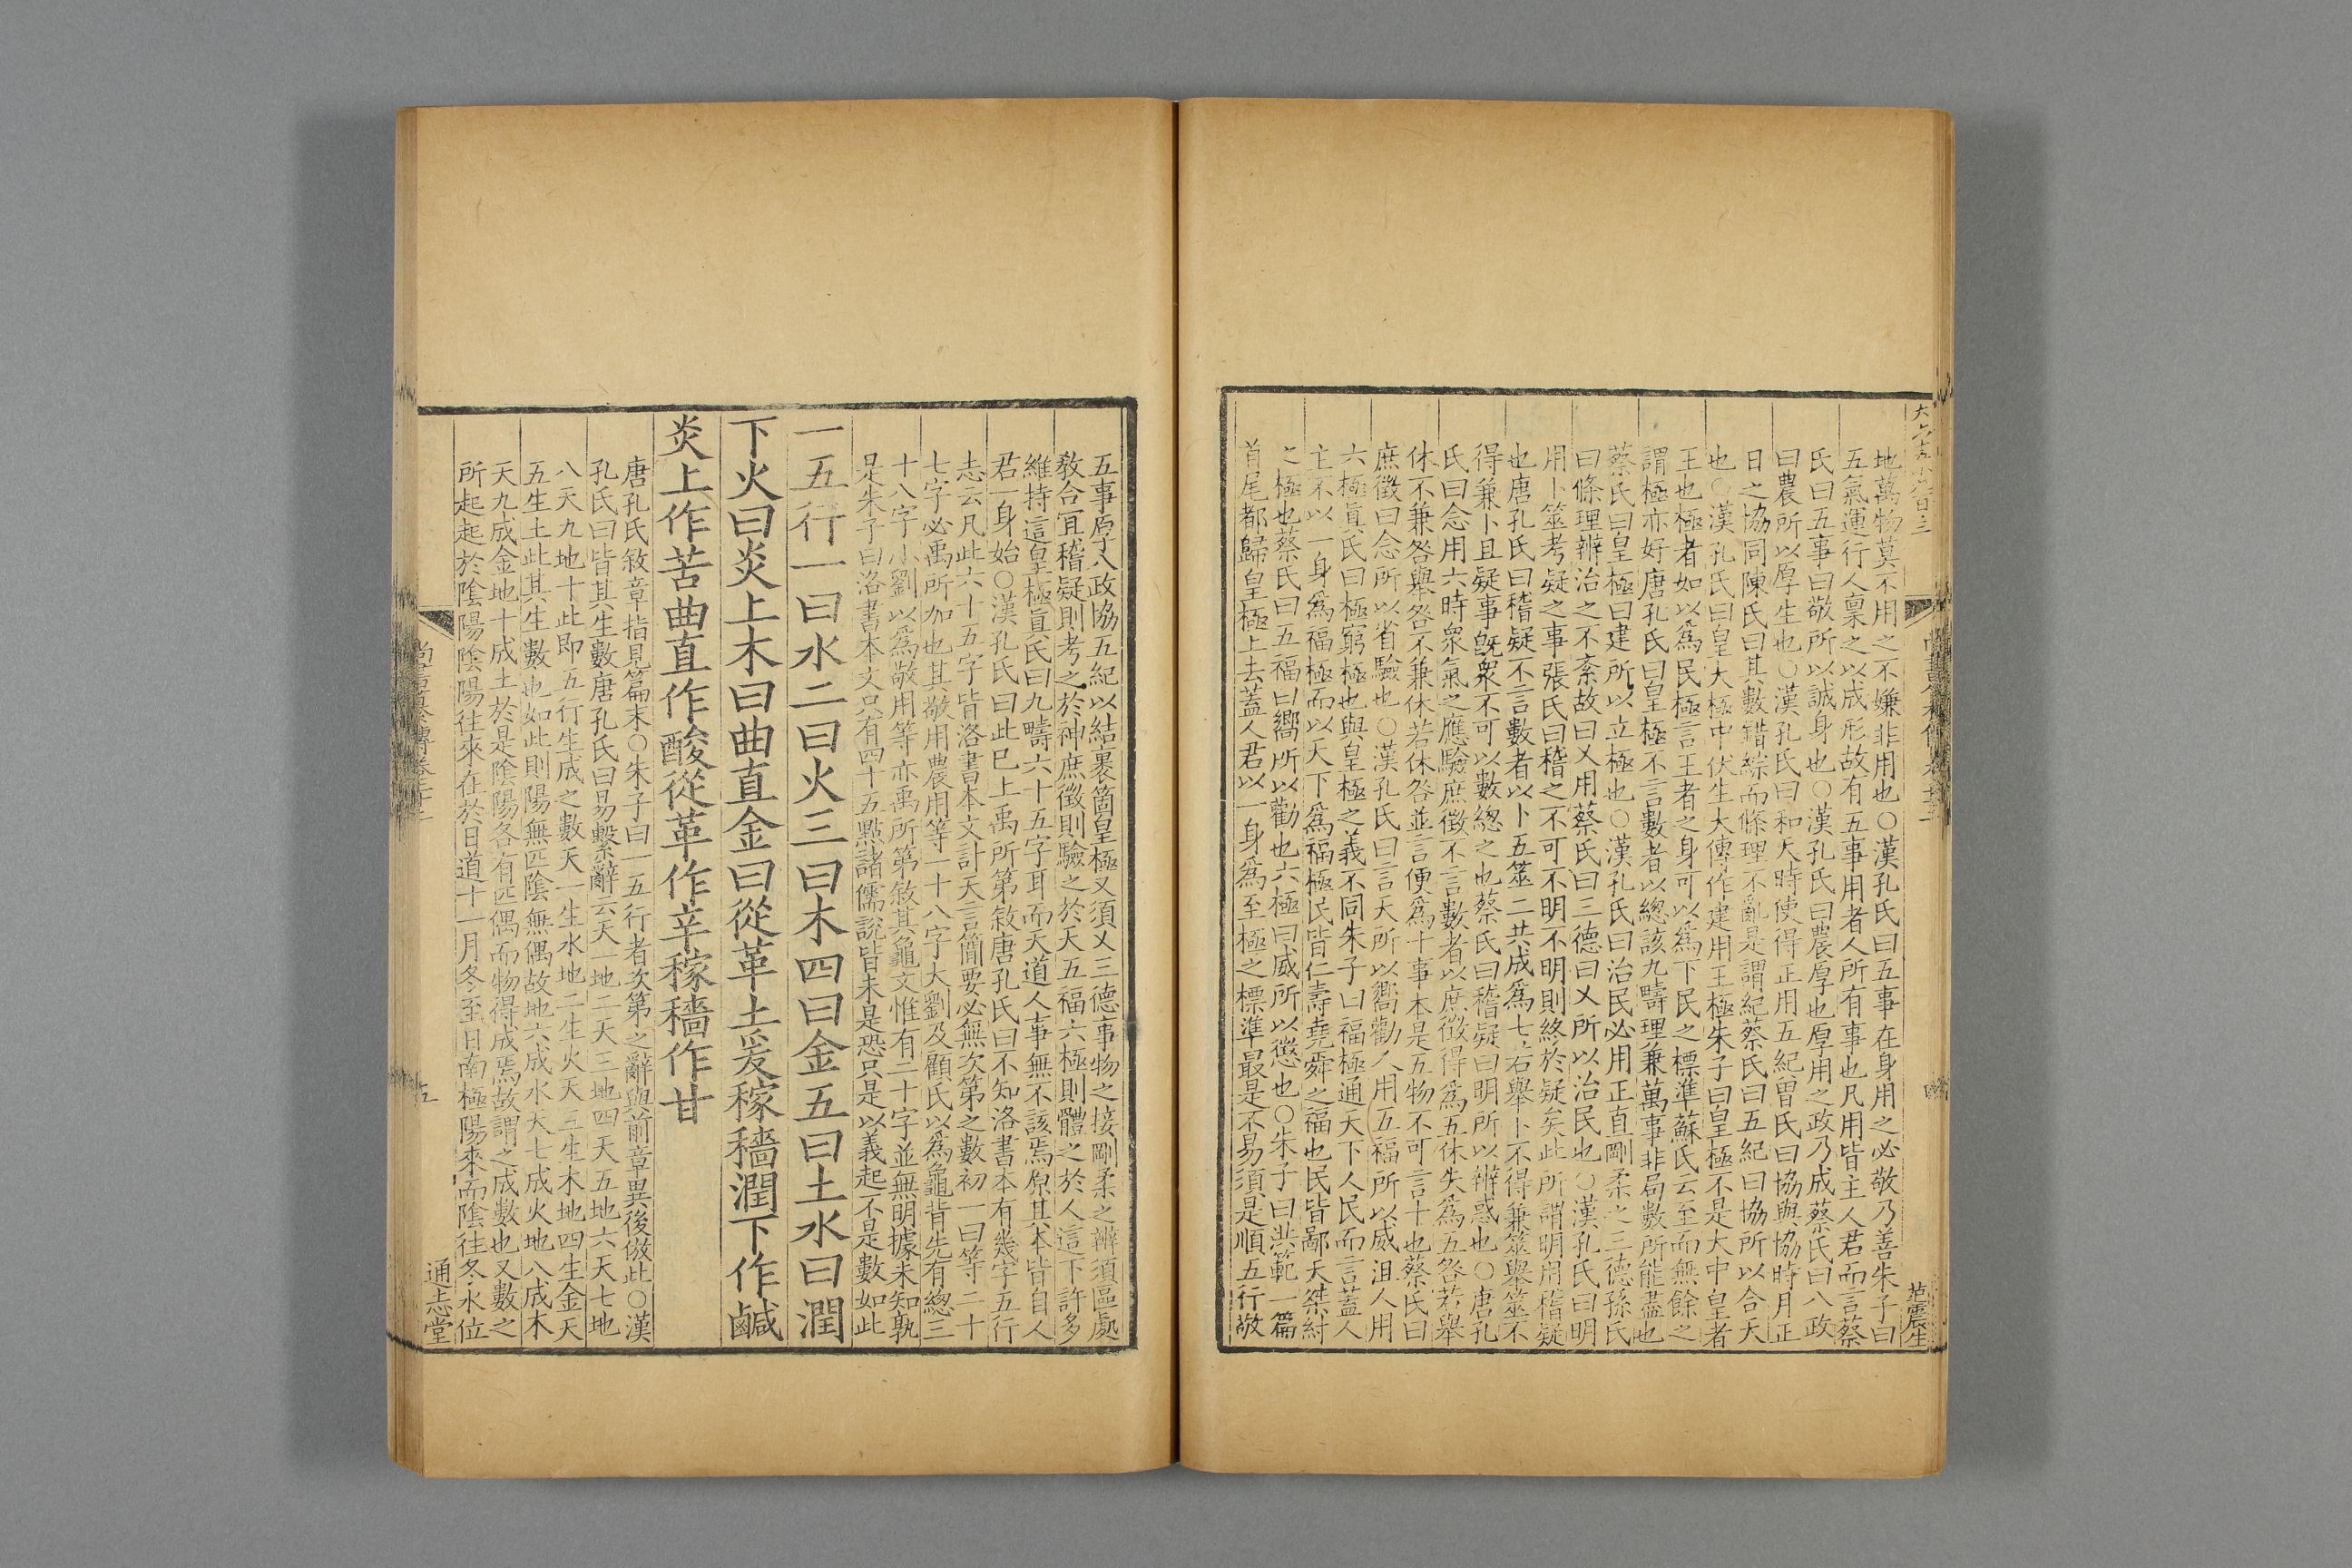 地萬物莫不用之不嫌非用也○漢孔氏曰五事在身用之必敬乃善朱子曰
五氣運行人稟之以成形故有五事用者人所有事也凡用皆主人君而言蔡
氏曰五事曰敬所以誠身也○漢孔氏曰農厚也厚用之政乃成蔡氏曰八政
曰農所以厚生也○漢孔氏曰和天時使得正用五紀曾氏曰協與協時月正
日之協同陳氏曰其數錯綜而條理不亂是謂紀蔡氏曰五紀曰協所以合天
也○漢孔氏曰皇大極中伏生大傳作建用王極朱子曰皇極不是大中皇者
王也極者如以爲民極言王者之身可以爲下民之標準蘇氏云至而無餘之
謂極亦好唐孔氏曰皇極不言數者以總該九疇理兼萬事非局數所能盡也
蔡氏曰皇極曰建所以立極也○漢孔氏曰治民必用正直剛柔之三德孫氏
曰條理辨治之不紊故曰乂用蔡氏曰三德曰乂所以治民也○漢孔氏曰明
用卜筮考疑之事張氏曰稽之不可不明不明則終於疑矣此所謂明用稽疑
也唐孔氏曰稽疑不言數者以卜五筮二共成爲七若舉卜不得兼筮舉筮不
得兼卜且疑事旣衆不可以數總之也蔡氏曰稽疑曰明所以辨惑也○唐孔
氏曰念用六時衆氣之應驗庶徵不言數者以庶徵得爲五休失爲五咎若舉
休不兼咎舉咎不兼休若休咎並言便爲十事本是五物不可言十也蔡氏曰
庶徵曰念所以省驗也○漢孔氏曰言天所以嚮勸人用五福所以威沮人用
六極眞氏曰極窮極也與皇極之義不同朱子曰福極通天下人民而言蓋人
主不以一身爲福極而以天下爲福極民皆仁壽堯舜之福也民皆鄙夭桀紂
之極也蔡氏曰五福曰嚮所以勸也六極曰威所以懲也○朱子曰洪範一篇
首尾都歸皇極上去蓋人君以一身爲至極之標準最是不易須是順五行敬
五事厚八政協五紀以結裹箇皇極又須乂三德事物之接剛柔之辨須區處
敎合宜稽疑則考之於神庶徵則驗之於天五福六極則體之於人這下許多
維持這皇極眞氏曰九疇六十五字耳而天道人事無不該焉原其本皆自人
君一身始○漢孔氏曰此已上禹所第敘唐孔氏曰不知洛書本有幾字五行
志云凡此六十五字皆洛書本文計天言簡要必無次第之數初一曰等二十
七字必禹所加也其敬用農用等一十八字大劉及顧氏以爲龜背先有總三
十八字小劉以爲敬用等亦禹所第敘其龜文惟有二十字並無明據未知孰
是朱子曰洛書本文只有四十五點諸儒說皆未是恐只是以義起不是數如此
一五行一曰水二曰火三曰木四曰金五曰土水曰潤
下火曰炎上木曰曲直金曰從革土爰稼穡潤下作鹹
炎上作苦曲直作酸從革作辛稼穡作甘
唐孔氏敘章指見篇末○朱子曰一五行者次第之辭與前章異後倣此○漢
孔氏曰皆其生數唐孔氏曰易繫辭云天一地二天三地四天五地六天七地
八天九地十此即五行生成之數天一生水地二生火天三生木地四生金天
五生土此其生數也如此則陽無匹陰無偶故地六成水天七成火地八成木
天九成金地十成土於是陰陽各有匹偶而物得成焉故謂之成數也又數之
所起起於陰陽陰陽往來在於日道十一月冬至日南極陽來而陰往冬水位
五
通志堂